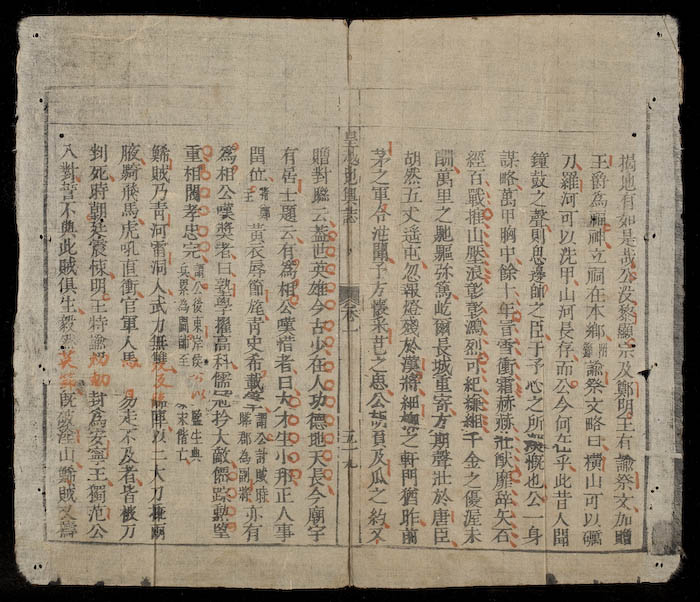 揭地有如是哉公沒黎顯宗及鄭明王有諭祭文加贈
王爵為福神立祠在本鄉諭祭文略曰橫山可以礪
刀羅河可以洗甲山河長存而公今何在乎此昔人聞
鐘鼓之聲則思邊帥之臣于予心之所嘆慨也公一身
謀略萬甲胸中餘十年盲雪衝霜赫赫壯猷靡辭矢石
經百戰摧山壓浪彰彰鴻烈可紀縑緗千金之優渥未
酬萬里之馳驅弥篤屹爾長城重寄方期聲壯於唐臣
胡然五丈遙屯忽報燈殘於漢將細柳之軒門猶昨甫
茅之軍令泄聞予方懷采芑之思公胡負及瓜之約又
皇越地輿誌 卷一 五十九
贈對聯云蓋世英雄今古少在人功德地天長今廟宇
有居士題云有為相公嘆惜者曰大才生小邦正人事
閏位黃衣辱節旄青史希載亦有
為相公嘆獎者曰勲學擢高科儒冠大敵踪勲
重相閥孝忠完
賊乃青河雷洞人武力無雙陣以二大刀兩
腋騎飛馬虎吼直衝官軍人馬易走不及者皆被刀
刲死時朝廷震悚明王特諭封為安寧王獨范公
入對誓不與此賊俱生毅然既破塗山賊又